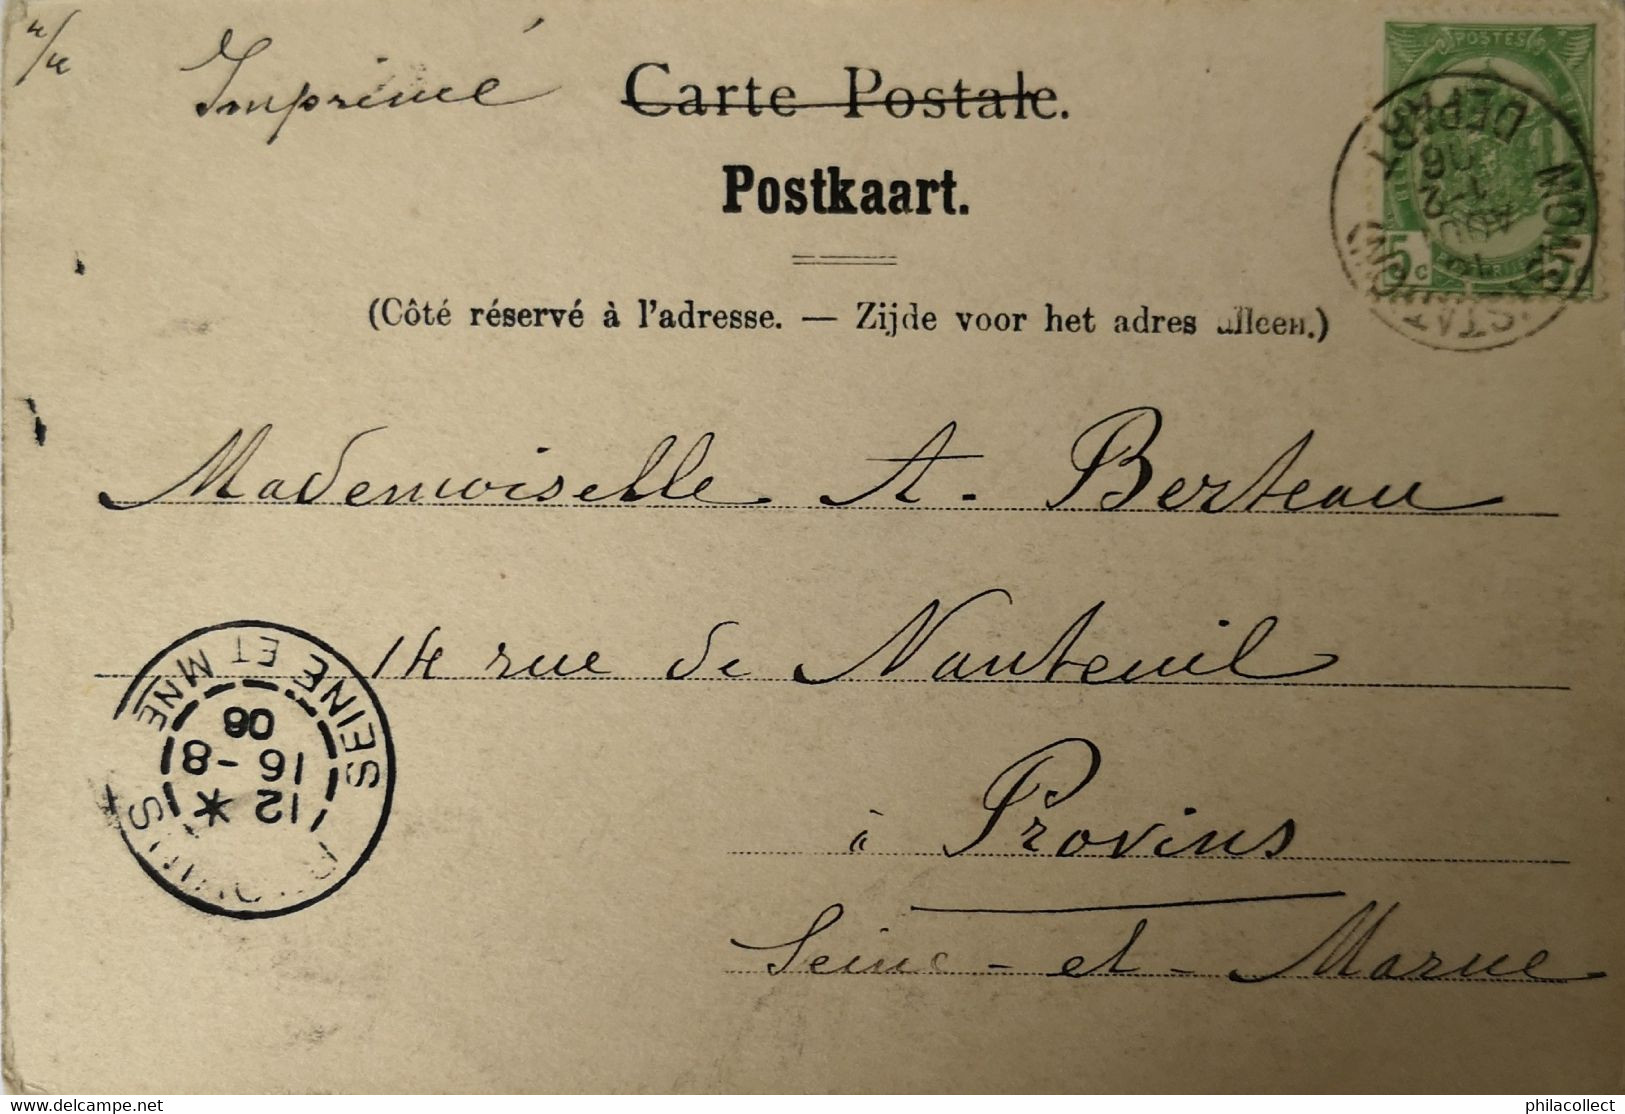 Imprimé
Carte Postale.
Postkaart.
(Côté réservé à l'adresse. — Zijde voor het adres alleen.)
POSTES
5 c
MONS (STATION)
DEPART
AOUT
06
Mademoiselle A. Berteau
14 rue de Nanteuil
à Provins
Seine-et-Marne
PROVINS
SEINE ET MNE
12 *
16 -8
06
delcampe.net
philacollect